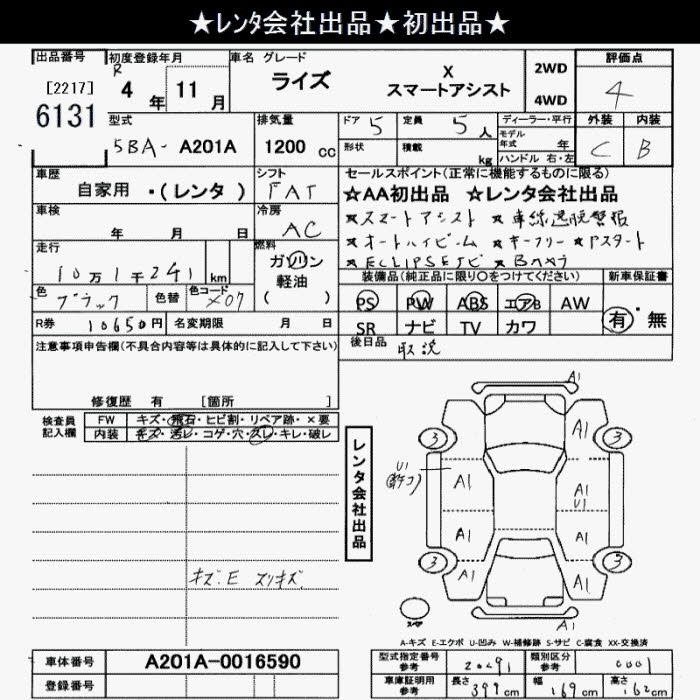 ★レンタ会社出品★初出品★
出品番号 初度登録年月 車名 グレード 評価点
[2217] R 4 年 11 月 ライズ X スマートアシスト 2WD 4WD 4
6131
型式 排気量 ドア 5 定員 5 人 ディーラー・平行 外装 内装
5BA- A201A 1200 cc 形状 積載 kg モデル年式 年 ハンドル 右・左 C B
車歴 シフト セールスポイント(正常に機能するものに限る)
自家用 ・(レンタ) FAT ☆AA初出品 ☆レンタ会社出品
車検 冷房 ★スマートアシスト ★車線逸脱警報
年 月 日 AC ★オートハイビーム ★キーフリー ★Pスタート
走行 燃料 ★ECLIPSEナビ ★Bカメラ
10万1千241 km ガソリン 軽油 ( )
装備品(純正品に限り○をつけてください) 新車保証書
色 ブラック 色替 色コード X07
PS PW ABS エアB AW 有・無
SR ナビ TV カワ
R券 10650円 名変期限 月 日
後日品 取説
注意事項申告欄(不具合内容等は具体的に記入して下さい)
修復歴 有 [箇所 ]
検査員記入欄 FW キズ・飛石・ヒビ割・リペア跡・×要
内装 キズ・汚レ・コゲ・穴・スレ・キレ・破レ
レンタ会社出品
A1
3 A1 3
U1
A1 A1
U1
A1 A1
3 A1 A1 3
A1
キズ.E スリキズ
A-キズ E-エクボ U-凹み W-補修跡 S-サビ C-腐食 XX-交換済
車体番号 A201A-0016590
型式指定番号 参考 20491 類別区分 参考 0001
登録番号
車庫証明用 参考 長さ 399 cm 幅 169 cm 高さ 162 cm